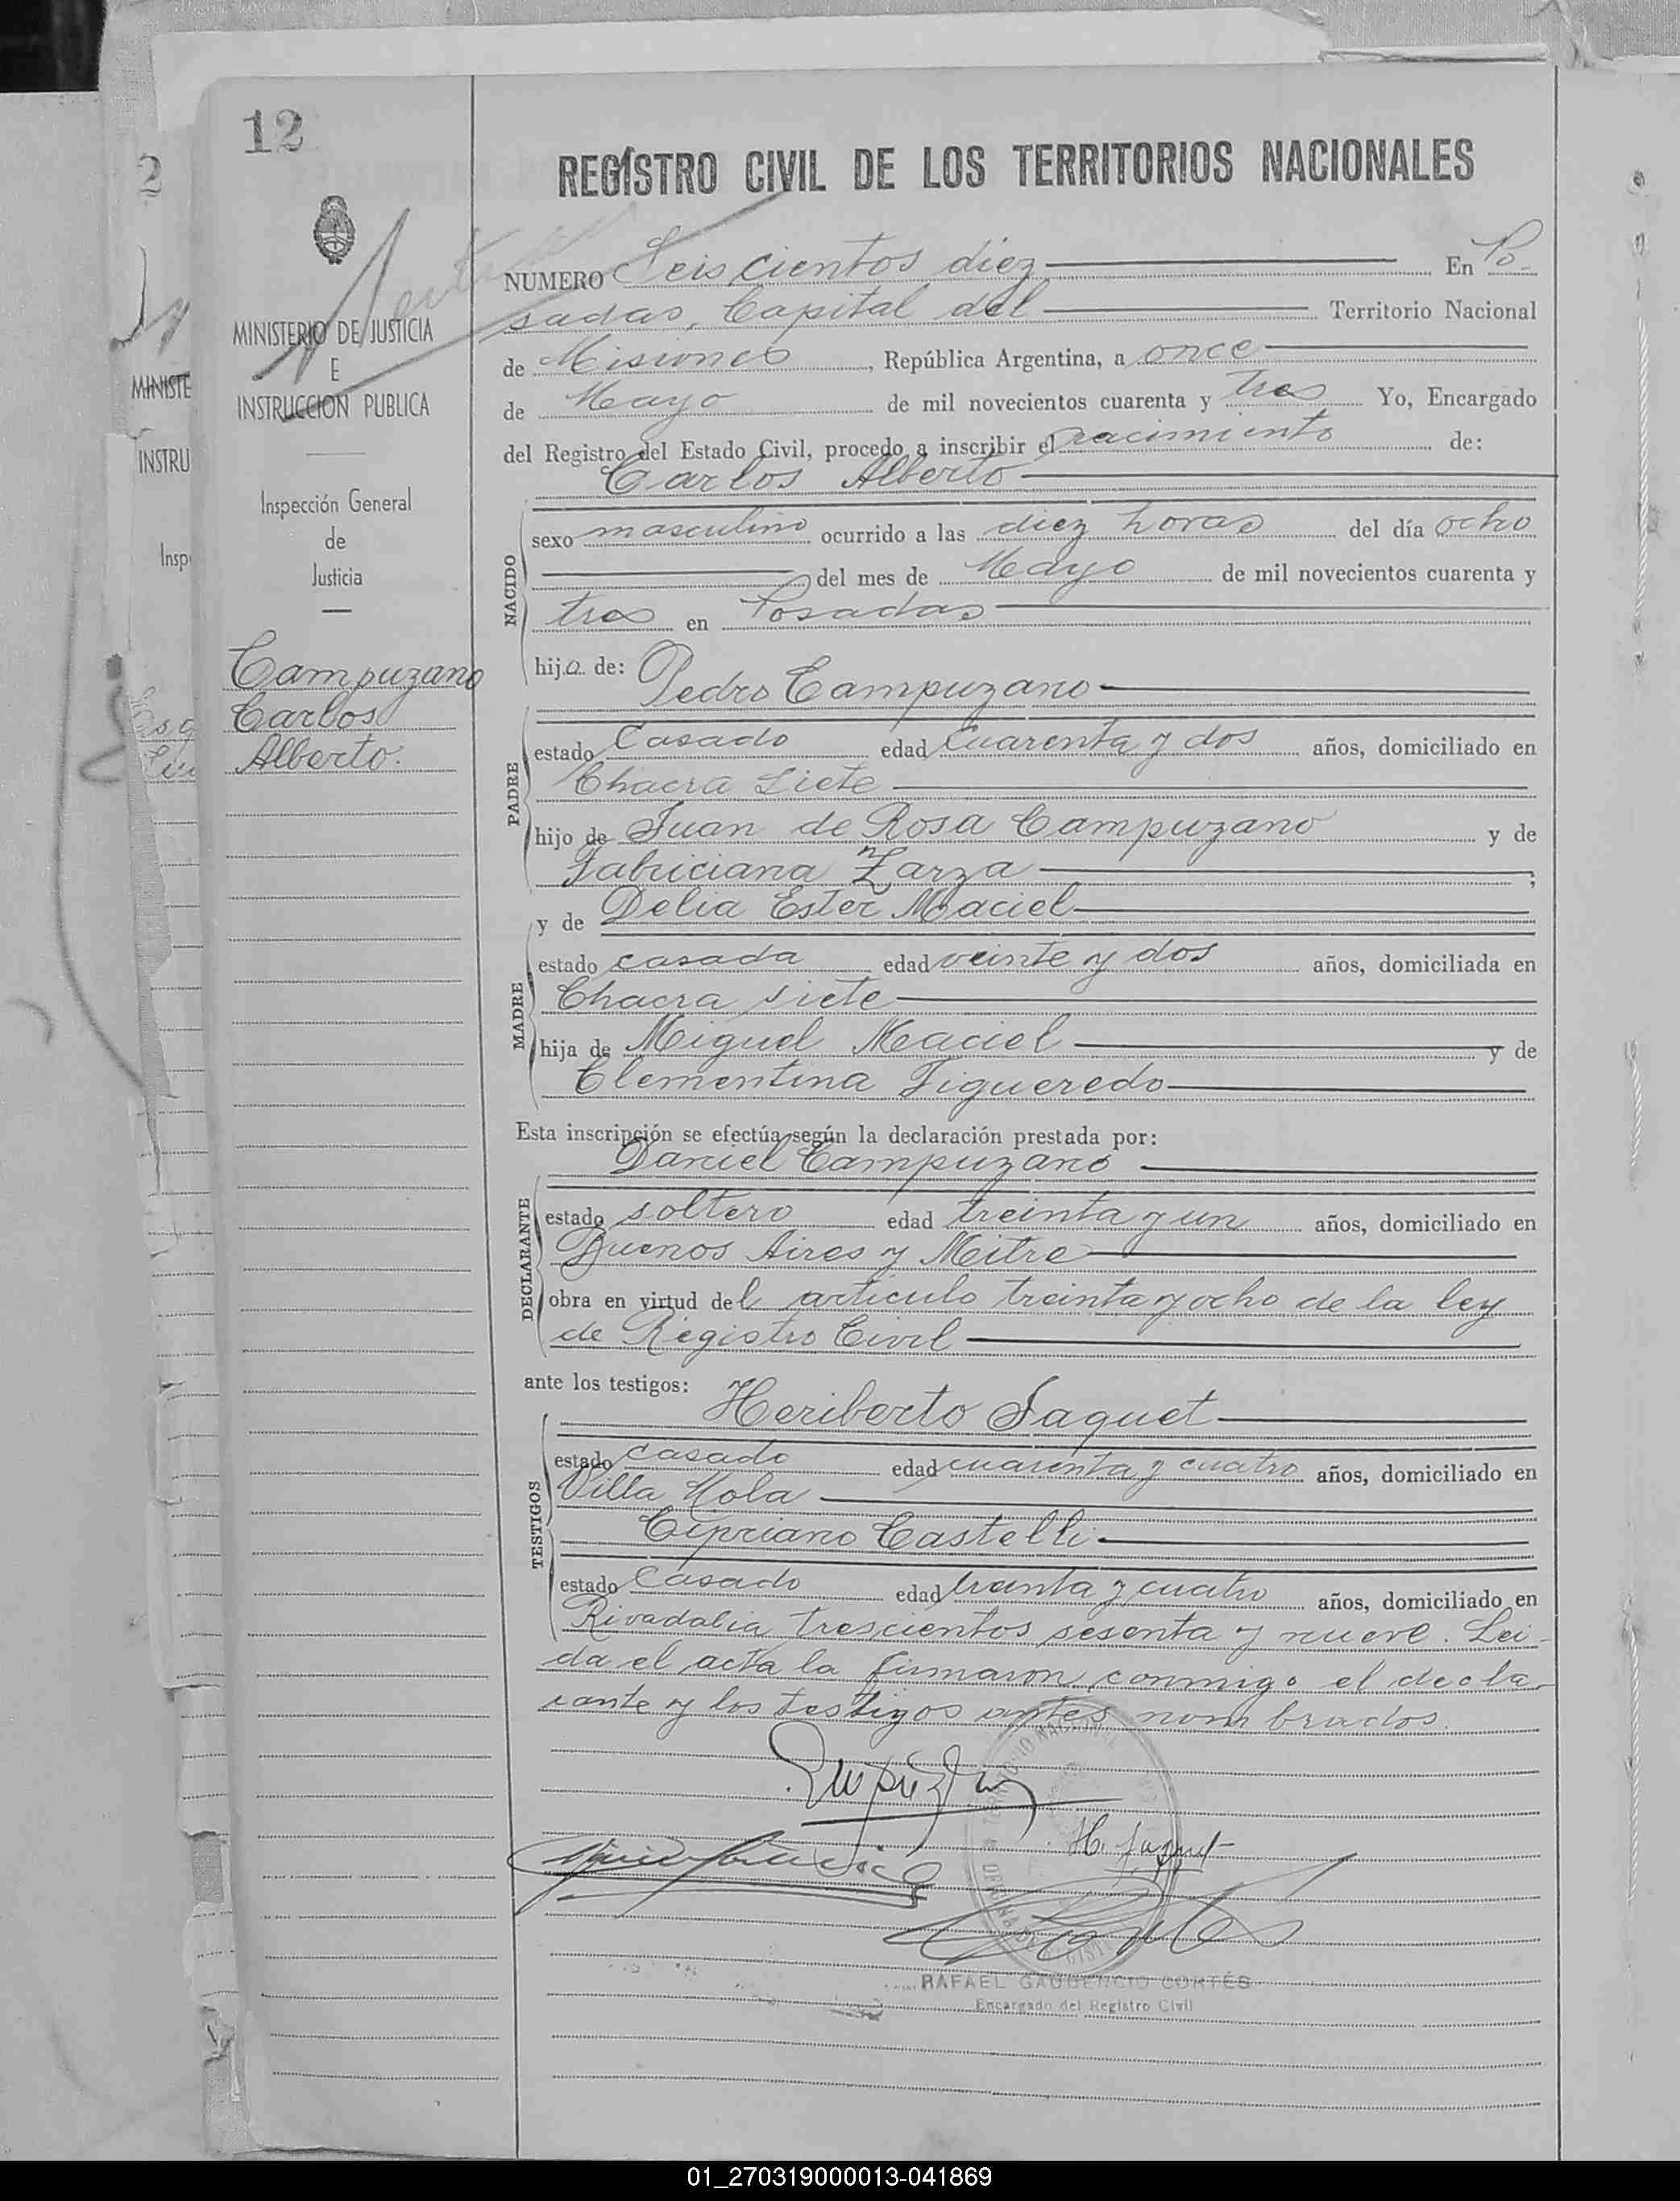 12
2
REGISTRO CIVIL DE LOS TERRITORIOS NACIONALES
MINISTERIO DE JUSTICIA
E
INSTRUCCION PUBLICA
Inspección General
de
Justicia
Campuzano
Carlos
Alberto.
MINISTE
INSTRU
Insp
NUMERO Seiscientos diez En Po-
sadas, Capital del Territorio Nacional
de Misiones, República Argentina, a once
de Mayo de mil novecientos cuarenta y tres Yo, Encargado
del Registro del Estado Civil, procedo a inscribir el nacimiento de:
Carlos Alberto
NACIDO
sexo masculino ocurrido a las diez horas del día ocho
del mes de Mayo de mil novecientos cuarenta y
tres en Posadas
hijo de: Pedro Campuzano
PADRE
estado Casado edad cuarenta y dos años, domiciliado en
Chacra Siete
hijo de Juan de Rosa Campuzano y de
Fabriciana Zarza ;
y de Delia Ester Maciel
MADRE
estado casada edad veinte y dos años, domiciliada en
Chacra siete
hija de Miguel Maciel y de
Clementina Figueredo
Esta inscripción se efectúa según la declaración prestada por:
Daniel Campuzano
DECLARANTE
estado soltero edad treinta y un años, domiciliado en
Buenos Aires y Mitre
obra en virtud del articulo treinta y ocho de la ley
de Registro Civil
ante los testigos: Heriberto Jaquet
TESTIGOS
estado casado edad cuarenta y cuatro años, domiciliado en
Villa Mola
Cipriano Castelli
estado Casado edad treinta y cuatro años, domiciliado en
Rivadabia trescientos sesenta y nueve. Lei-
da el acta la firmaron conmigo el decla-
rante y los testigos antes nombrados.
H. Jaquet
RAFAEL GAUDENCIO CORTÉS
Encargado del Registro Civil
01_270319000013-041869